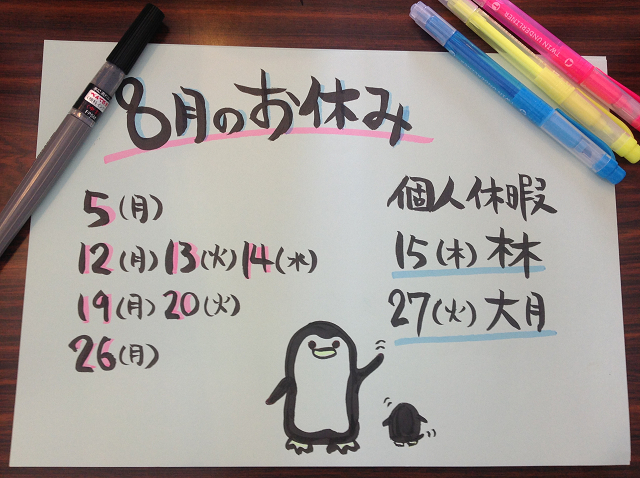 8月のお休み
5(月)
12(月)13(火)14(水)
19(月)20(火)
26(月)
個人休暇
15(木)林
27(火)大月
TWIN UNDERLINER